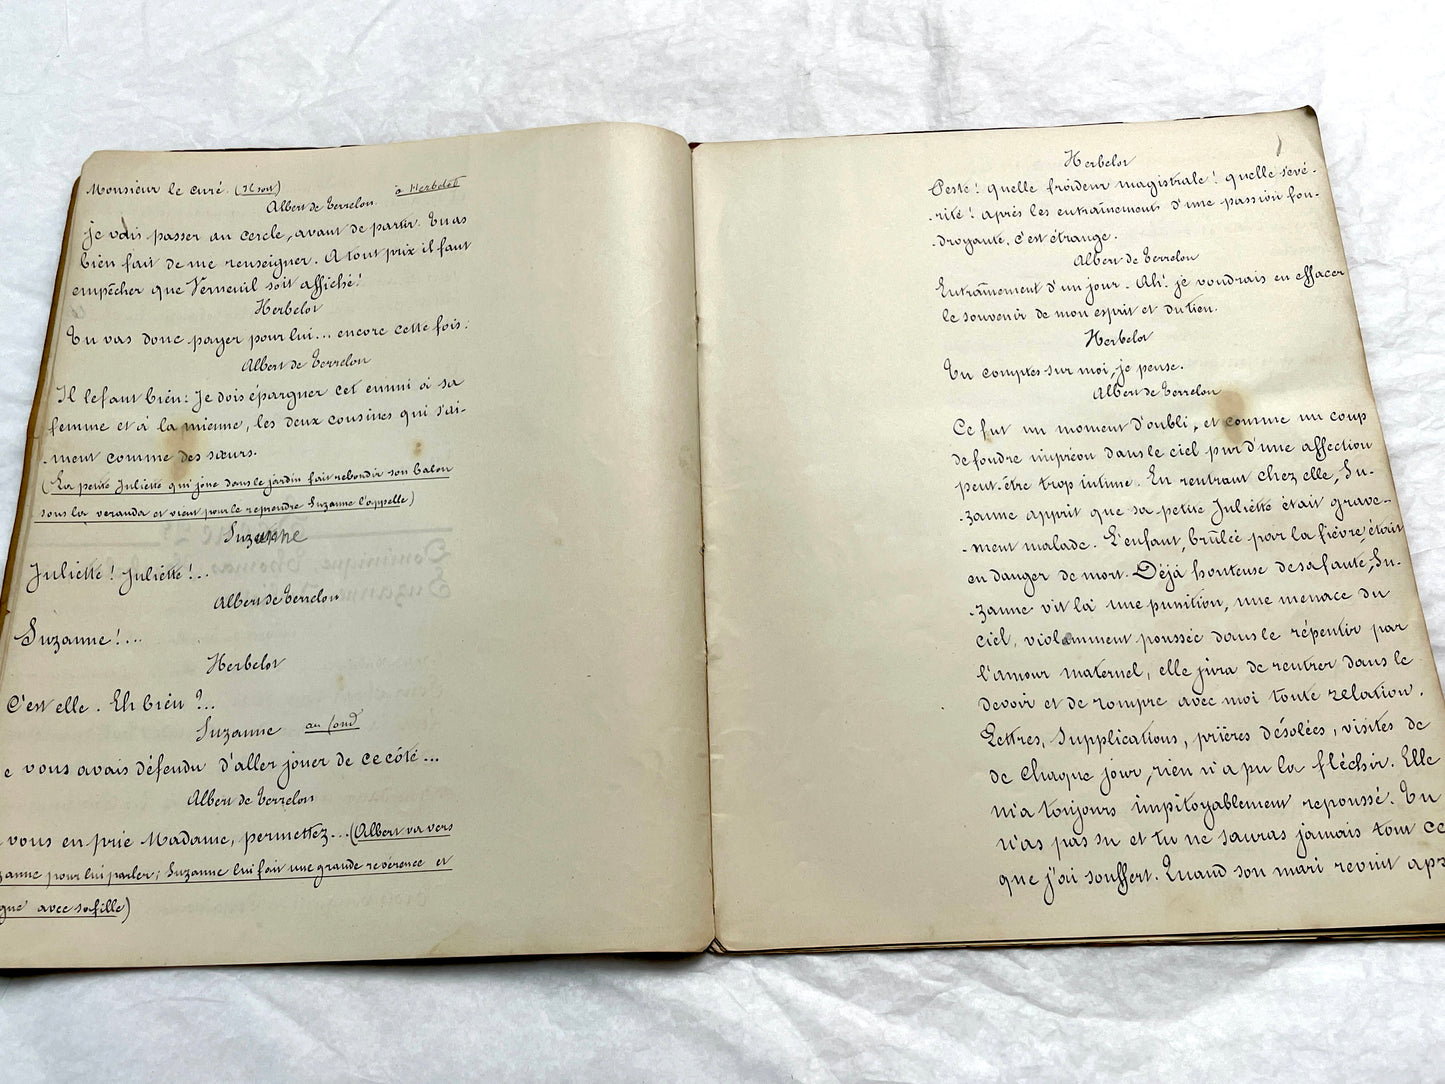 Monsieur le curé. (Il sort)
à Herbelot
Albert de Terrelon.
je vais passer au cercle, avant de partir. Tu as
bien fait de me renseigner. A tout prix il faut
empêcher que Verneuil soit affiché!
Herbelot
Tu vas donc payer pour lui... encore cette fois:
Albert de Terrelon
Il le faut bien: Je dois épargner cet ennui à sa
femme et à la mienne, les deux cousines qui s'ai-
-ment comme des sœurs.
(La petite Juliette qui joue dans le jardin fait rebondir son balon
sous la veranda et vient pour le reprendre Suzanne l'appelle)
Suzanne
Juliette! Juliette!...
Albert de Terrelon
Suzanne!...
Herbelot
C'est elle. Eh bien?...
Suzanne au fond
e vous avais défendu d'aller jouer de ce côté...
Albert de Terrelon
vous en prie Madame, permettez...(Albert va vers
zanne pour lui parler; Suzanne lui fait une grande reverence et
gne avec sa fille)
Herbelot
Peste! quelle froideur magistrale! quelle sévé-
-rité! après les entraînements d'une passion fou-
-droyante, c'est étrange.
Albert de Terrelon
Entraînement d'un jour. Ah! je voudrais en effacer
le souvenir de mon esprit et du tien.
Herbelot
Tu comptes sur moi, je pense.
Albert de Terrelon
Ce fut un moment d'oubli, et comme un coup
de foudre imprévu dans le ciel pur d'une affection
peut-être trop intime. En rentrant chez elle, Su-
-zanne apprit que sa petite Juliette était grave-
-ment malade. L'enfant, brûlée par la fièvre, était
en danger de mort. Déjà honteuse de sa faute, Su-
-zanne vit là une punition, une menace du
ciel, violamment poussée dans le répentir par
l'amour maternel, elle jura de rentrer dans le
devoir et de rompre avec moi toute relation.
Lettres, Supplications, prières désolées, visites de
de chaque jour, rien n'a pu la fléchir. Elle
m'a toujours impitoyablement repoussé. Tu
n'as pas su et tu ne sauras jamais tout ce
que j'ai souffert. Quand son mari revint apr